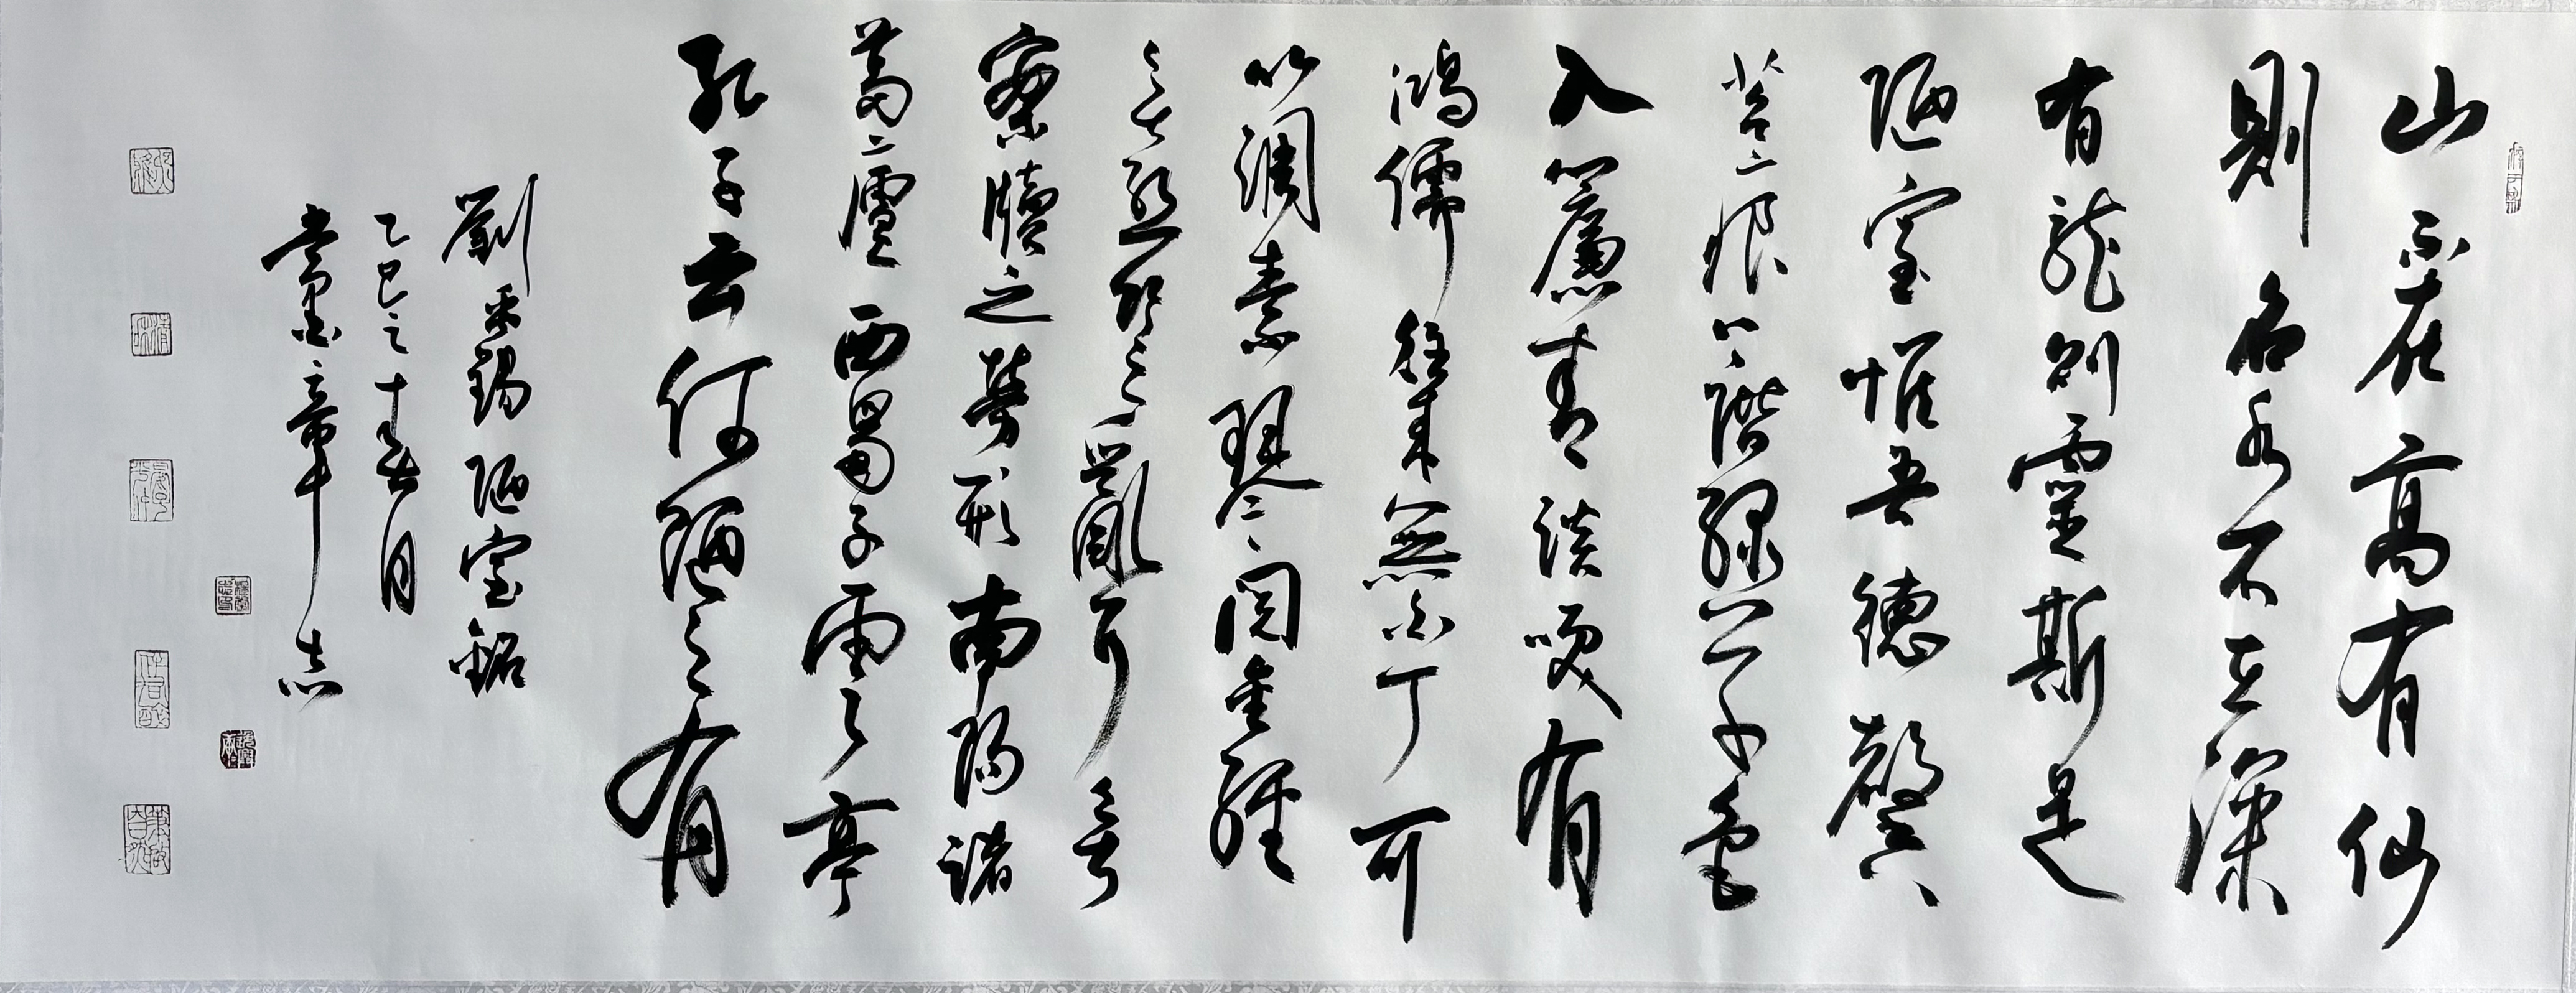 山不在高有仙
則名水不在深
有龍則靈斯是
陋室惟吾德馨
苔痕上階綠草色
入簾青談笑有
鴻儒往來無白丁可
以調素琴閱金經
無絲竹之亂耳無
案牘之勞形南陽諸
葛廬西蜀子雲亭
孔子云何陋之有
劉禹錫陋室銘
乙巳之春月
志